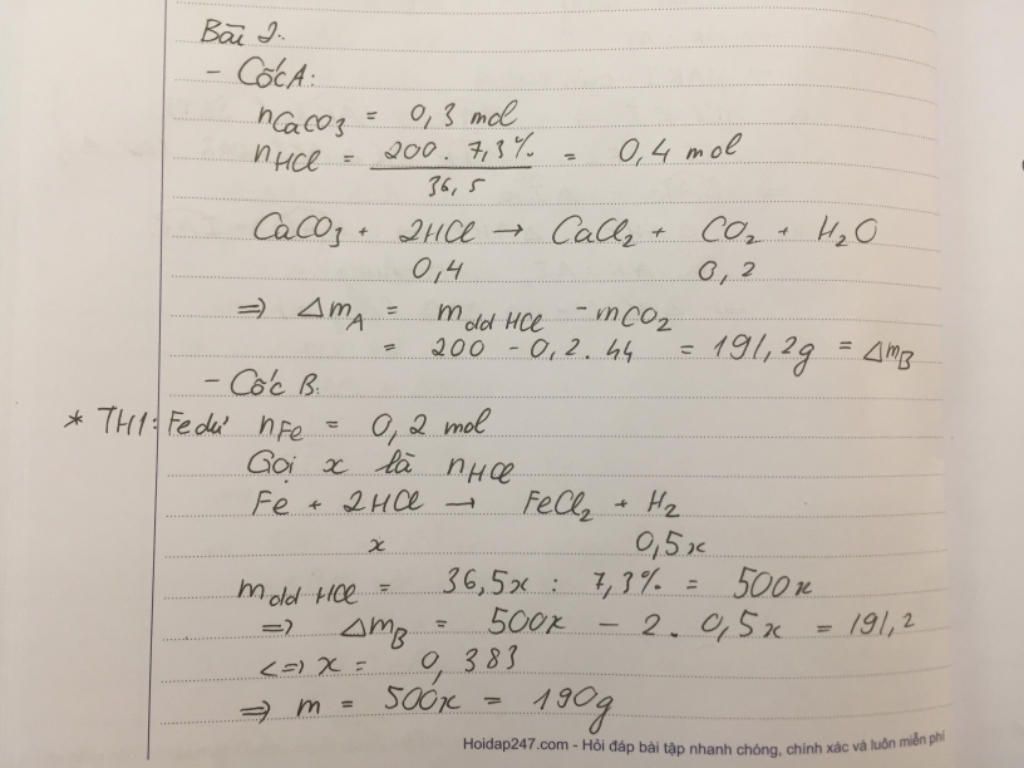 Bài 2:
- Cốc A:
nCaCO3 = 0,3 mol
nHCl = 200 . 7,3% / 36,5 = 0,4 mol
CaCO3 + 2HCl → CaCl2 + CO2 + H2O
0,4 0,2
=> ΔmA = mdd HCl - mCO2
= 200 - 0,2 . 44 = 191,2g = ΔmB
- Cốc B:
* TH1: Fe dư nFe = 0,2 mol
Gọi x là nHCl
Fe + 2HCl → FeCl2 + H2
x 0,5x
mdd HCl = 36,5x : 7,3% = 500x
=> ΔmB = 500x - 2 . 0,5x = 191,2
<=> x = 0,383
=> m = 500x = 190g
Hoidap247.com - Hỏi đáp bài tập nhanh chóng, chính xác và luôn miễn phí